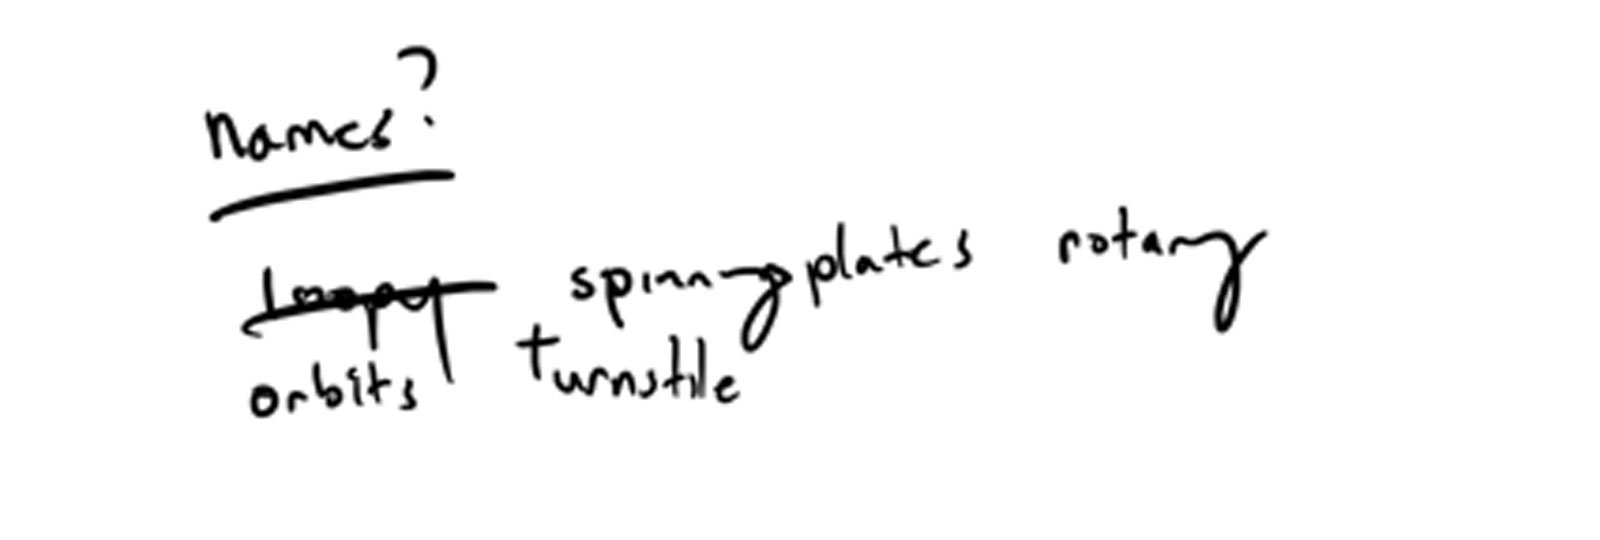 names?
loopy spinning plates rotary
orbits turnstile